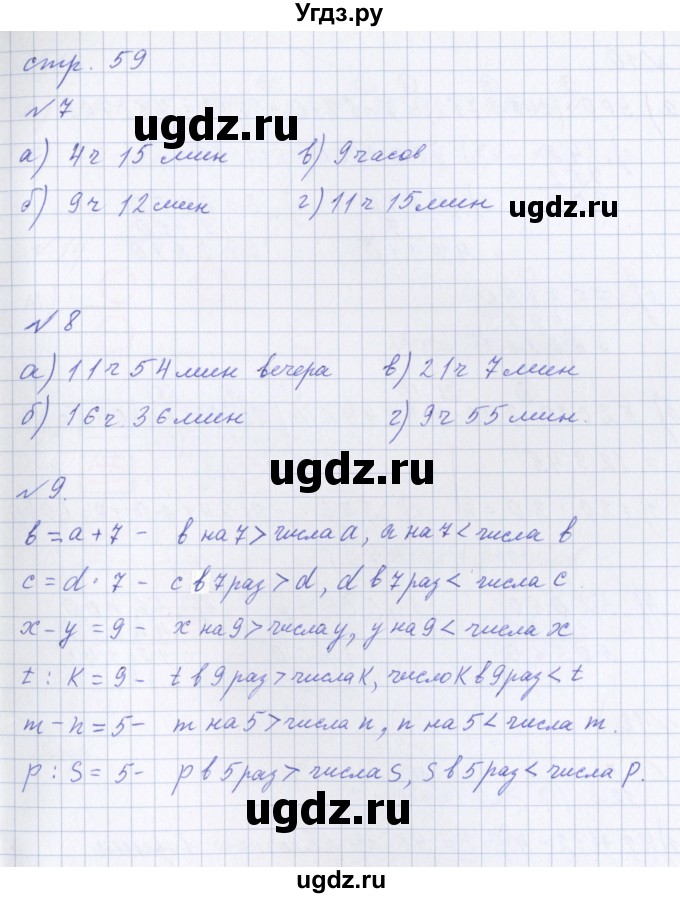 Угдз.ру
стр. 59
ugdz.ru
№7
а) 4ч 15 мин в) 9 часов
б) 9ч 12 мин г) 11ч 15 мин
ugdz.ru
№8
а) 11ч 54 мин вечера в) 21ч 7 мин
б) 16ч 36 мин г) 9ч 55 мин.
ugdz.ru
№9.
b = a + 7 - b на 7 > числа a, a на 7 < числа b
c = d · 7 - c в 7 раз > d, d в 7 раз < числа c
x - y = 9 - x на 9 > числа y, y на 9 < числа x
t : K = 9 - t в 9 раз > числа K, число K в 9 раз < t
m - n = 5 - m на 5 > числа n, n на 5 < числа m.
p : S = 5 - p в 5 раз > числа S, S в 5 раз < числа p.
ugdz.ru
ugdz.ru